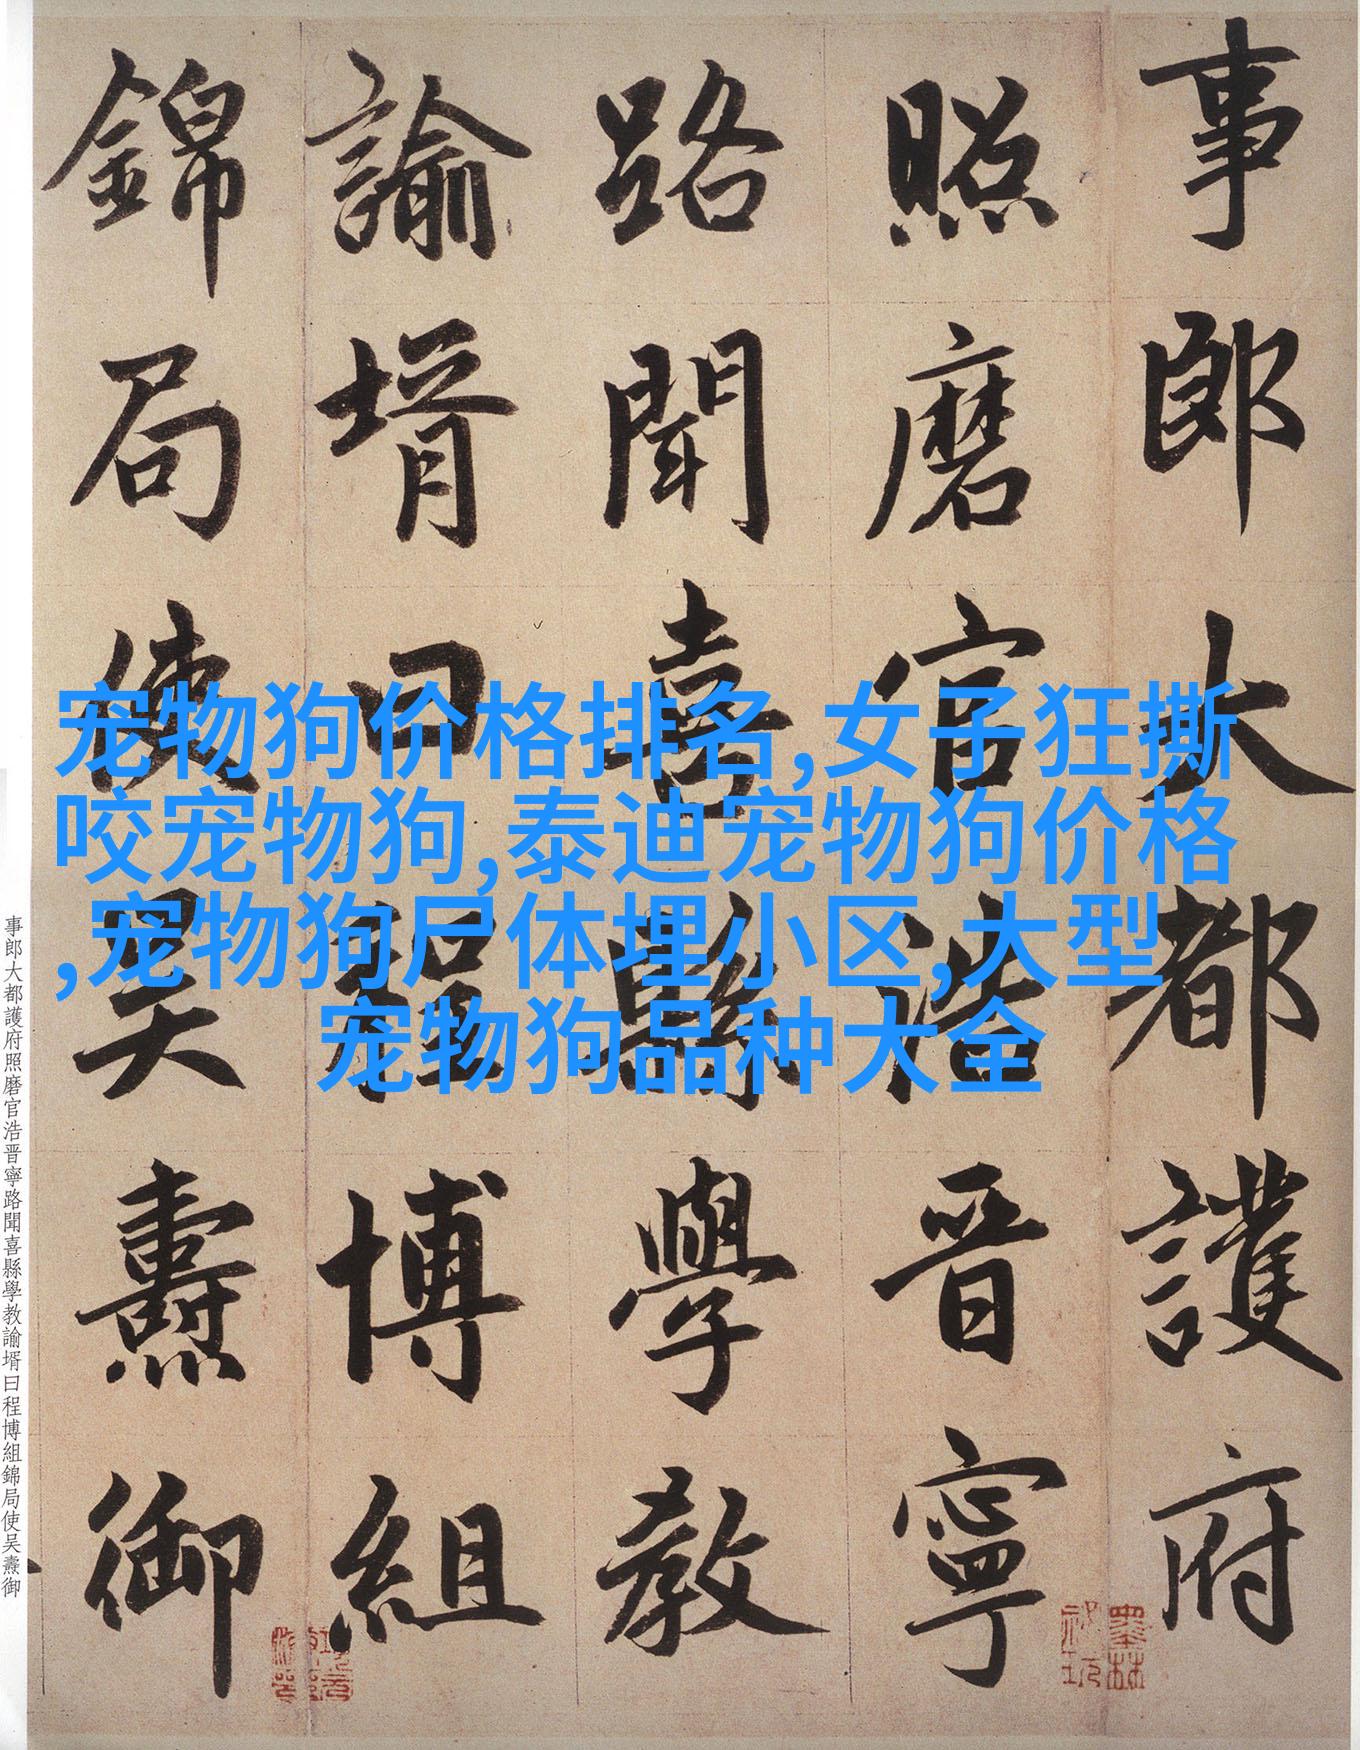 事郎大都護府
照磨官浩晋寧
路聞喜縣學教
諭壻曰程博組
錦局使吴燾御
宠物狗价格排名,女子狂撕
咬宠物狗,泰迪宠物狗价格
,宠物狗尸体埋小区,大型
宠物狗品种大全
事郎大都護府照磨官浩晋寧路聞喜縣學教諭壻曰程博組錦局使吴燾御